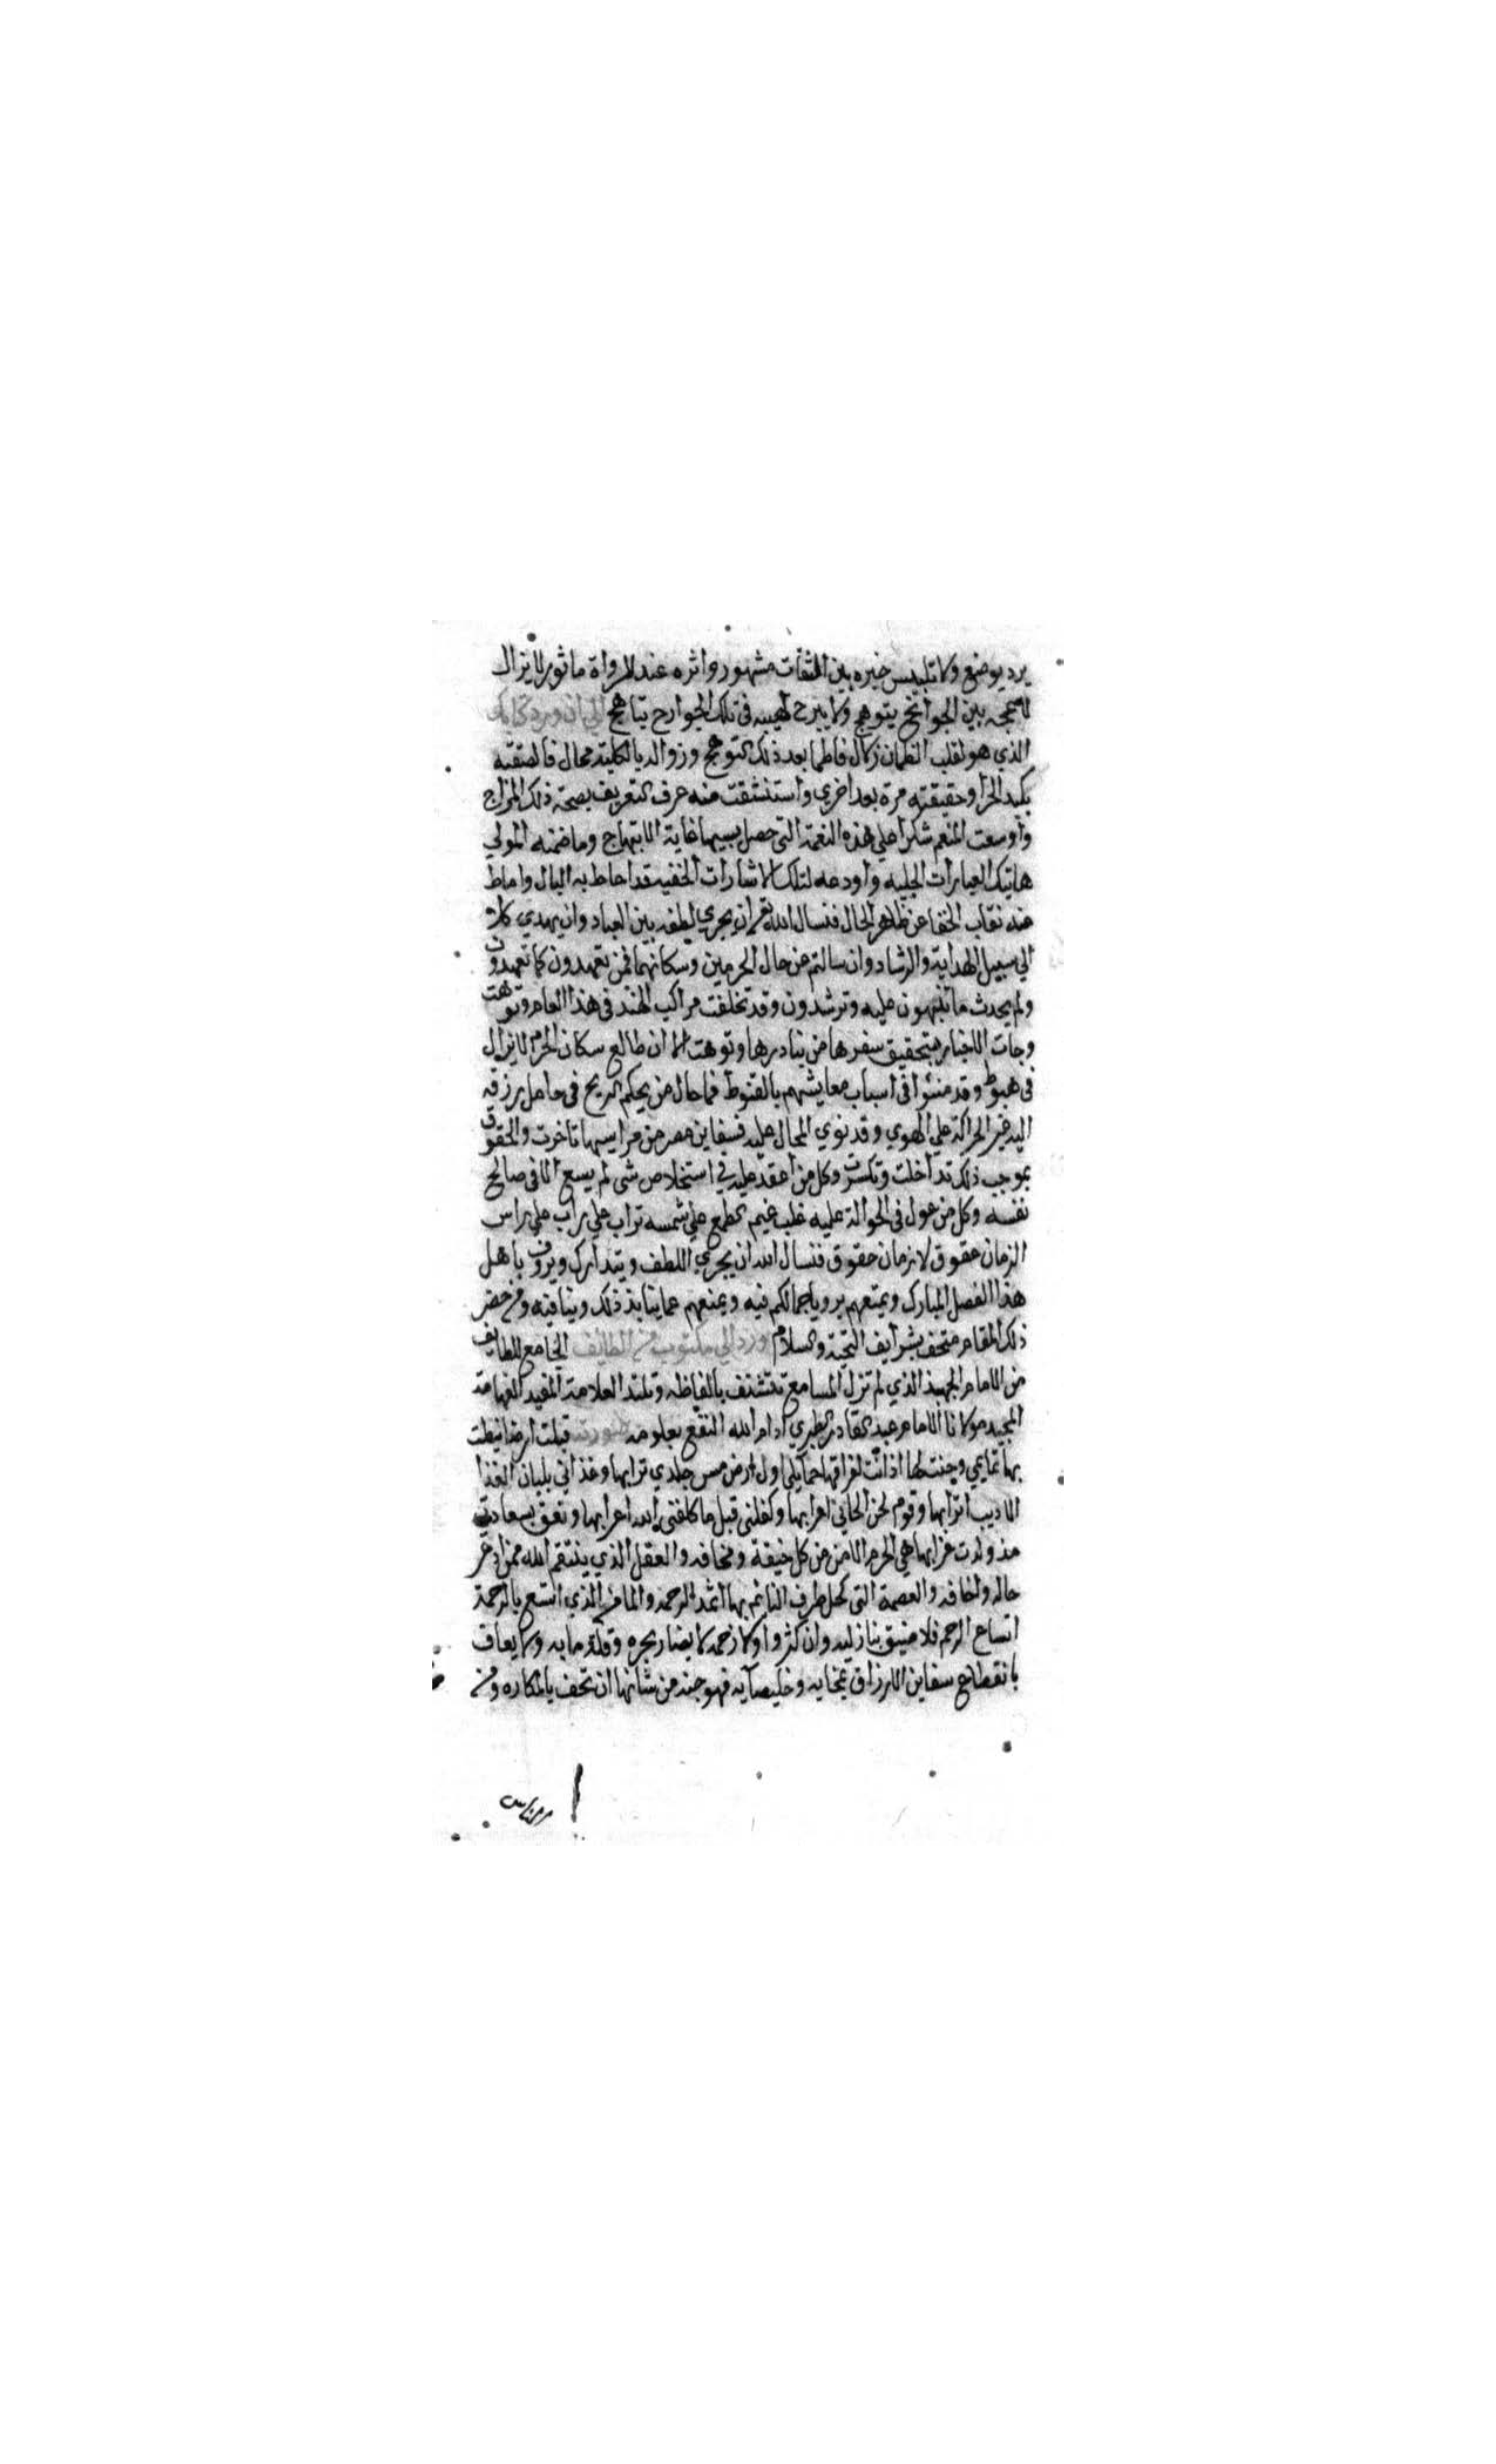 يرد بوضع ولا تلبيس خبره بين الثقات مشهور واثره عند الرواة ماثور لا يزال
لاعجه بين الجوانح يتوهج ولا يبرح لهيبه في تلك الجوارح يتاجج الي ان ورد كتابكم
الذي هو لقلب الظمان زلال فاطفا بعد ذلك التوهج وزواله بالكلية محال فالصقته
بكبد الحرا وحقيقته مرة بعد اخري واستنشقت منه عرف التعريف بصحة ذلك المزاج
واوسعت المنعم شكرا علي هذه النعمة التي حصل بسببها غاية الابتهاج وما ضمنه المولي
هاتيك العبارات الجليه واودعه لتلك الاشارات الخفيه قد احاط به البال واماط
عنه نقاب الخفا عن ظاهر الحال فنسال الله تعم ان يجري لطفه بين العباد وان يهدي كلا
الي سبيل الهداية والرشاد وان سالتم عن حال الحرمين وسكانهما فمن تعهدون كما تعهدون
ولم يحدث ما تنبهون عليه وترشدون وقد تخلفت مراكب الهند في هذا العام وتوهت
وجات الاخبار بتحقيق سفرها من بنادرها وتوهت الا ان طالع سكان الحرم لا يزال
في هبوط وقد منئوا في اسباب معايشهم بالقنوط فما حال من يحكم الريح في حاصل رزقه
اليه غير الحراكة علي الهوي وقد نوي المحال عليه فسفاين مصر من مراسيها تاخرت والحقوق
بموجب ذلك تداخلت وتكسرت وكل من اعتمد عليه في استخلاص شي لم يسع الا في صالح
نفسه وكل من عول في الحوالة عليه غلب غيم الطمع علي شمسه تراب علي راب علي راس
الزمان عقوق لا زمان حقوق فنسال الله ان يجري اللطف ويتدارك ويروف باهل
هذا الفصل المبارك ويمتعهم برويا جمالكم فيه ويمنعهم عما ينابذ ذلك وينافيه ومن حضر
ذلك المقام متحف بشرايف التحية والسلام ورد الي مكتوب من الطائف الجامع للطايف
من الامام الجهبذ الذي لم تزل المسامع تتشنف بالفاظه وتلتذ العلامة المفيد الفهامة
المجيد مولانا الامام عبد القادر الطبري ادام الله النفع بعلومه صورته قبلت ارضا نيطت
بها تمايمي وجنت لها اذ انت لفراقها حمايلي اول ارض مس جلدي ترابها وغذاني بلبان الغذا
الاديب اترابها وقوم لحن الحاني اعرابها وكفلني قبل ما كلفني الله اعرابها ونعق بسعادتي
مذ ولدت غرابها هي الحرم الامن من كل خيفة ومخافه والعقل الذي ينتقم الله ممن اذعر
حاله واخافه والعصمة التي كحل طرف النائم بها اثمد الرحمه والمامن الذي اتسع بالرحمة
اتساع الرحم فلا ضيق بنازليه وان كثروا ولا زحمه لا يضار بحره وقلة مابه ولا يعاف
بانقطاع سفاين الارزاق بمخايه وخليصآيه فهو جنه من شانها ان تحف بالمكاره ومن